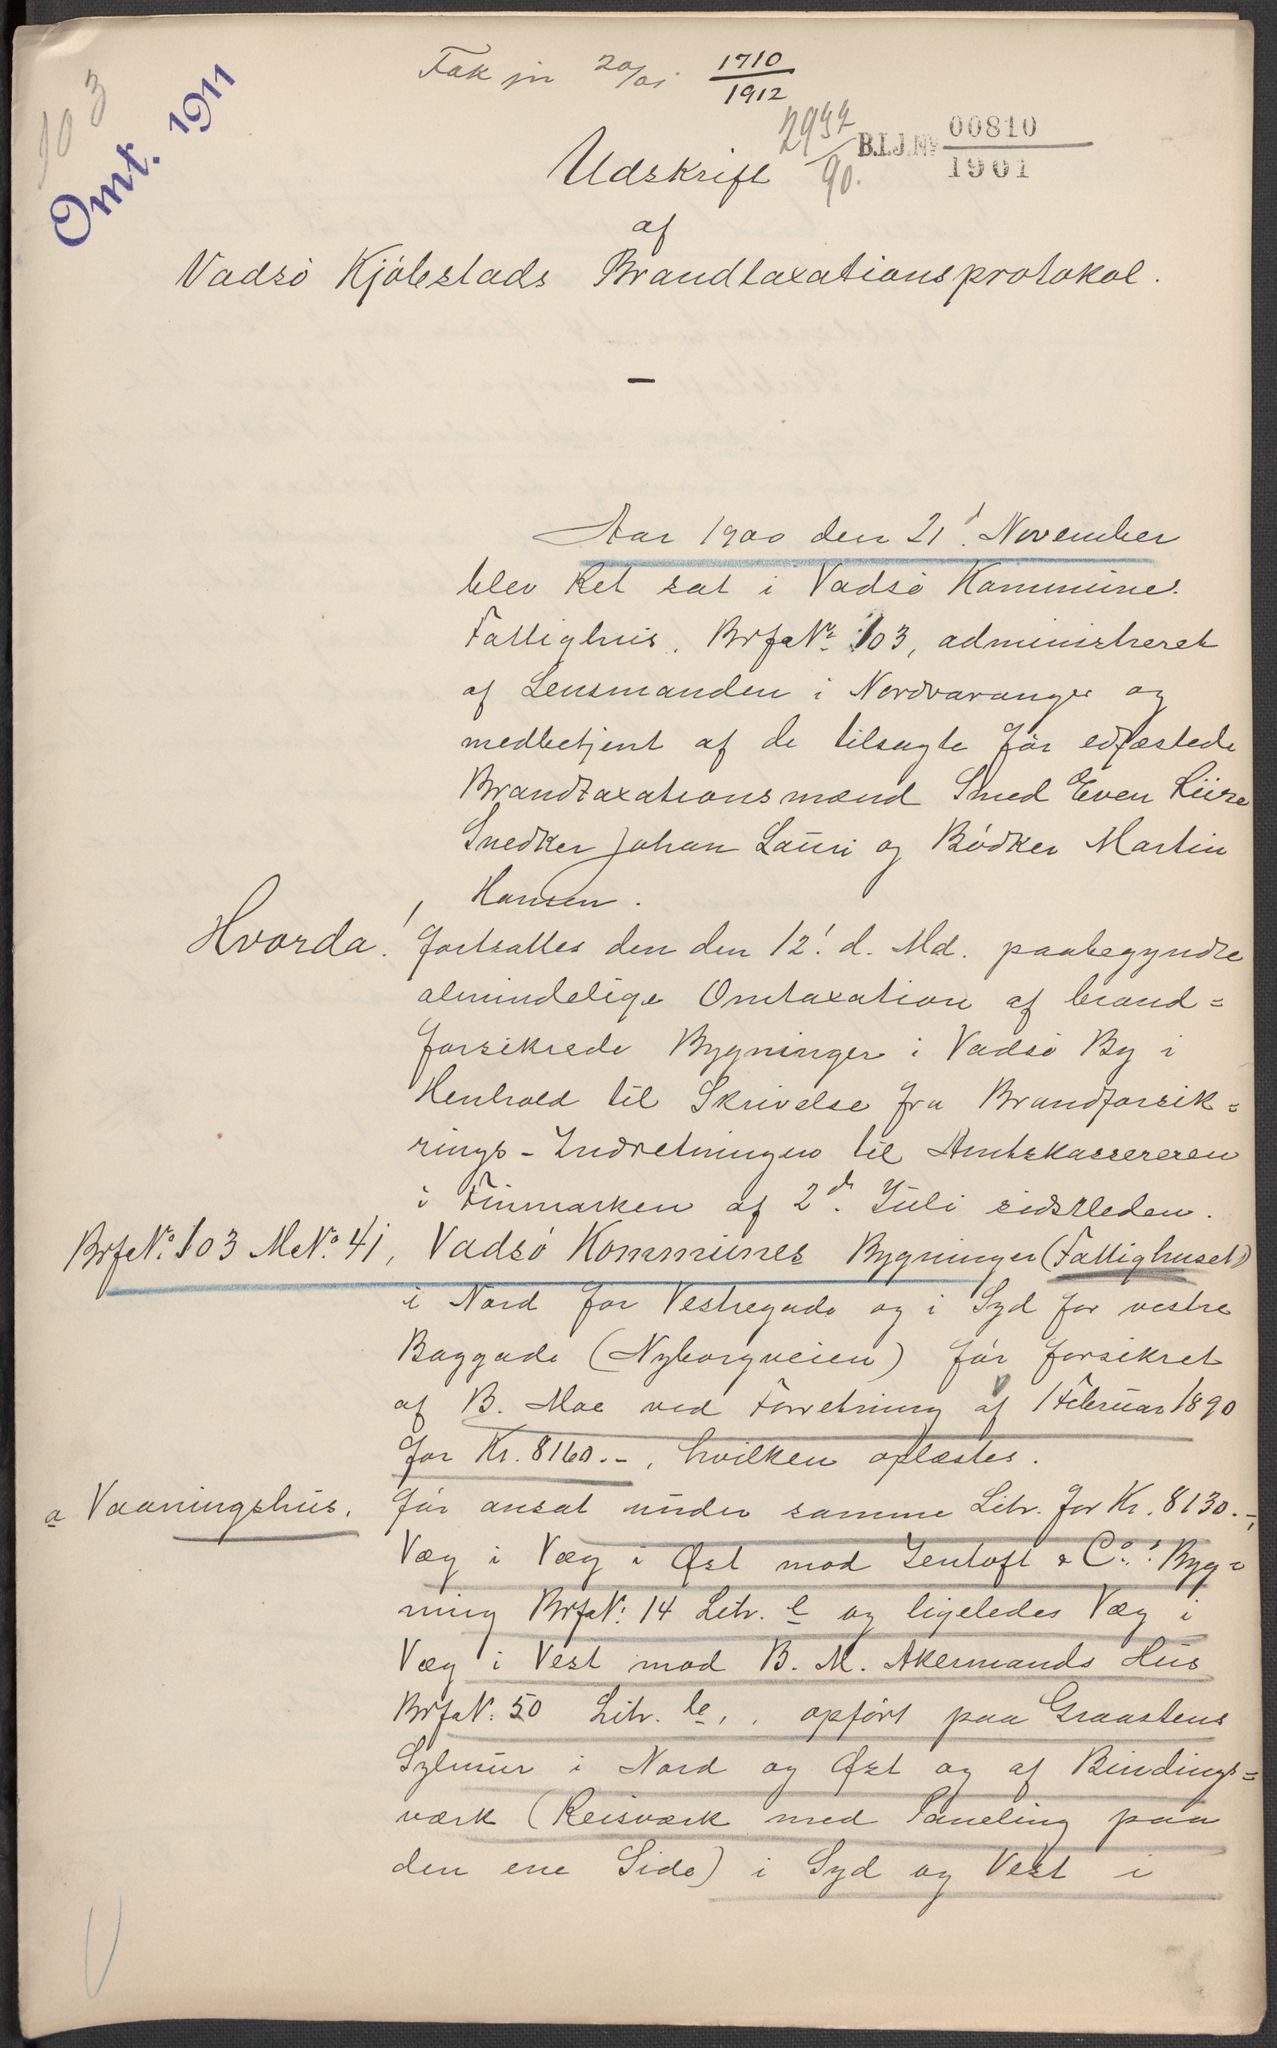 103
Omt. 1911
Tak jn 20/01 1710/1912
2937/90.
B.I.J.No 00810/1901
Udskrift
af
Vadsö Kjöbstads Brandtaxationsprotokol.
–
Aar 1900 den 21d. November
blev Ret sat i Vadsö Kommunes
Fattighus, BrfaNr. 103, administreret
af Lensmanden i Nordvaranger og
medbetjent af de tilsagte för edfæstede
Brandtaxationsmænd Smed Even
Snedker Johan Lauri og Bödker Martin
Hansen.
Hvorda! fortsattes den den 12! d. Md. paabegyndte
almindelige Omtaxation af brand=
forsikrede Bygninger i Vadsö By i
Henhold til Skrivelse fra Brandforsik=
rings-Indretningen til Amtskassereren
i Finmarken af 2d. Juli sidstleden.
BrfaNo. 103 MNo. 41, Vadsö Kommunes Bygninger (Fattighuset)
i Nord for Vestregade og i Syd for vestre
Baggade (Nyborgveien) för forsikret
af B. Moe ved Forretning af 1 Februar 1890
for Kr. 8160.-, hvilken oplæstes.
a Vaaningshus. för ansat under samme Litr. for Kr. 8130.-,
Væg i Væg i Öst mod Zentoft & Co.s Byg=
ning BrfaN: 14 Litr. e og ligeledes Væg i
Væg i Vest mod B. M. Akermands Hus
BrfaN: 50 Litr. , opfört paa Graastens
Sylmur i Nord og Öst og af Bindings=
værk (Reisværk med Paneling paa
den ene Side) i Syd og Vest i